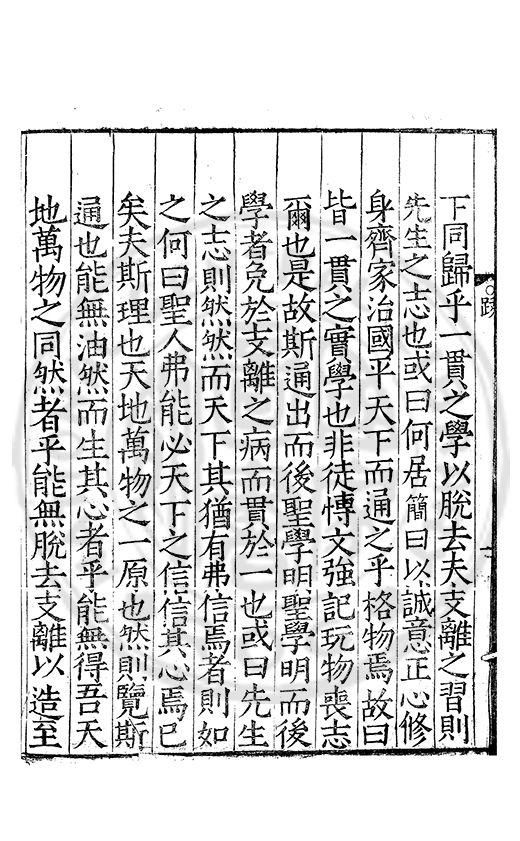 下同歸乎一貫之學以脫去夫支離之習則
先生之志也或曰何居簡曰以誠意正心修
身齊家治國平天下而通之乎格物焉故曰
皆一貫之實學也非徒慱文強記玩物喪志
爾也是故斯通出而後聖學明聖學明而後
學者免於支離之病而貫於一也或曰先生
之志則然然而天下其猶有弗信焉者則如
之何曰聖人弗能必天下之信信其心焉已
矣夫斯理也天地萬物之一原也然則覽斯
通也能無油然而生其心者乎能無得吾天
地萬物之同然者乎能無脫去支離以造至